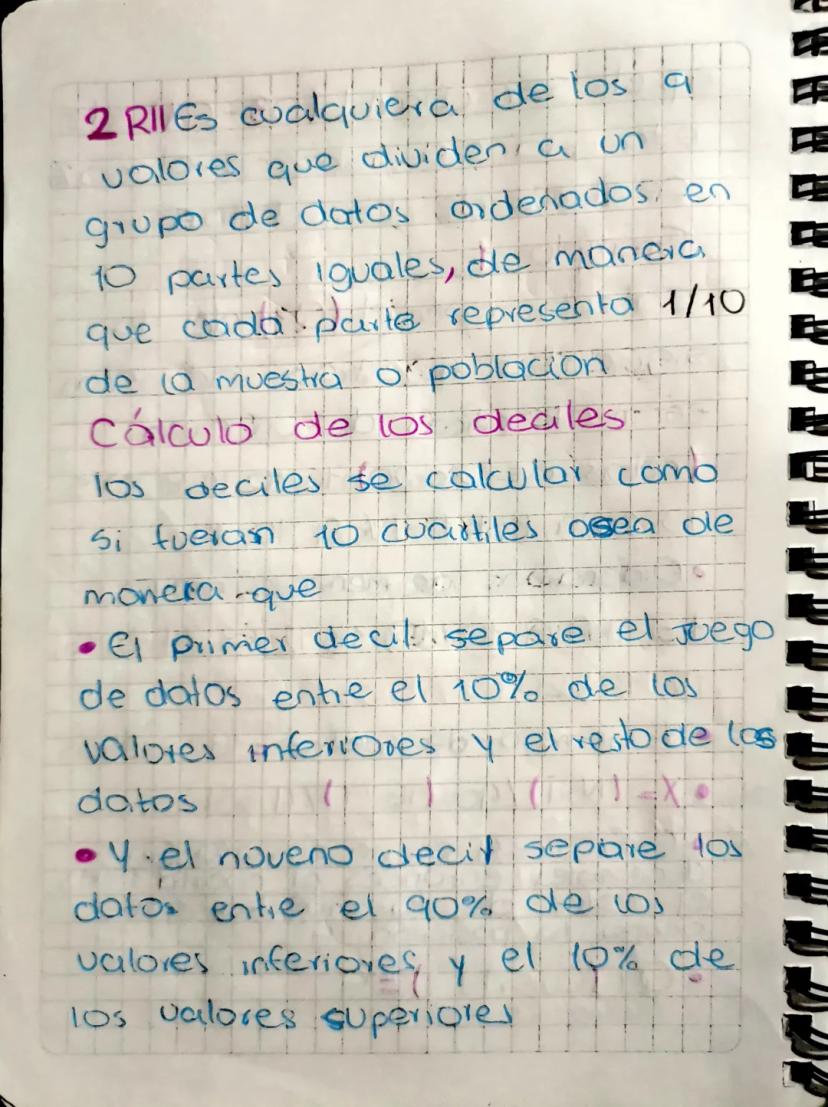 2 R// Es cualquiera de los 9
valores que dividen a un
grupo de datos ordenados en
10 partes iguales, de manera
que cada parte representa 1/10
de la muestra o poblacion
Cálculo de los deciles
los deciles se calcular como
si fueran 10 cuartiles osea de
manera que
• El primer decil separe el juego
de datos entre el 10% de los
valores inferiores y el resto de los
datos
• Y el noveno decil separe los
datos entre el 90% de los
valores inferiores y el 10% de
los valores superiores